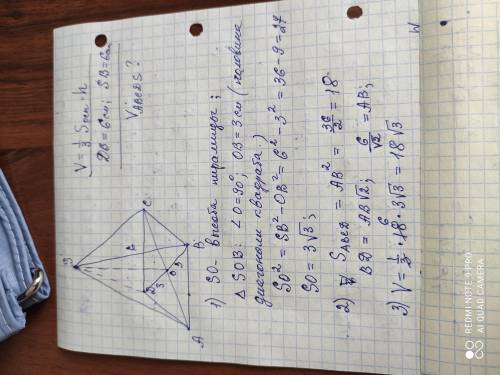 V = 1/3 Sосн · h
DB = 6 см; SB = 6 см
VABCDS ?
S
C
D
3
O
3
A
B
1) SO - высота пирамиды;
△ SOB: ∠O = 90°; OB = 3 см (половина
диагонали квадрата.)
SO² = SB² - OB² = 6² - 3² = 36 - 9 = 27
SO = 3√3;
2) SABCD = AB² = 36/2 = 18.
BD = AB√2; 6/√2 = AB;
3) V = 1/3 · 18 · 3√3 = 18√3
6
REDMI NOTE 9 PRO
AI QUAD CAMERA